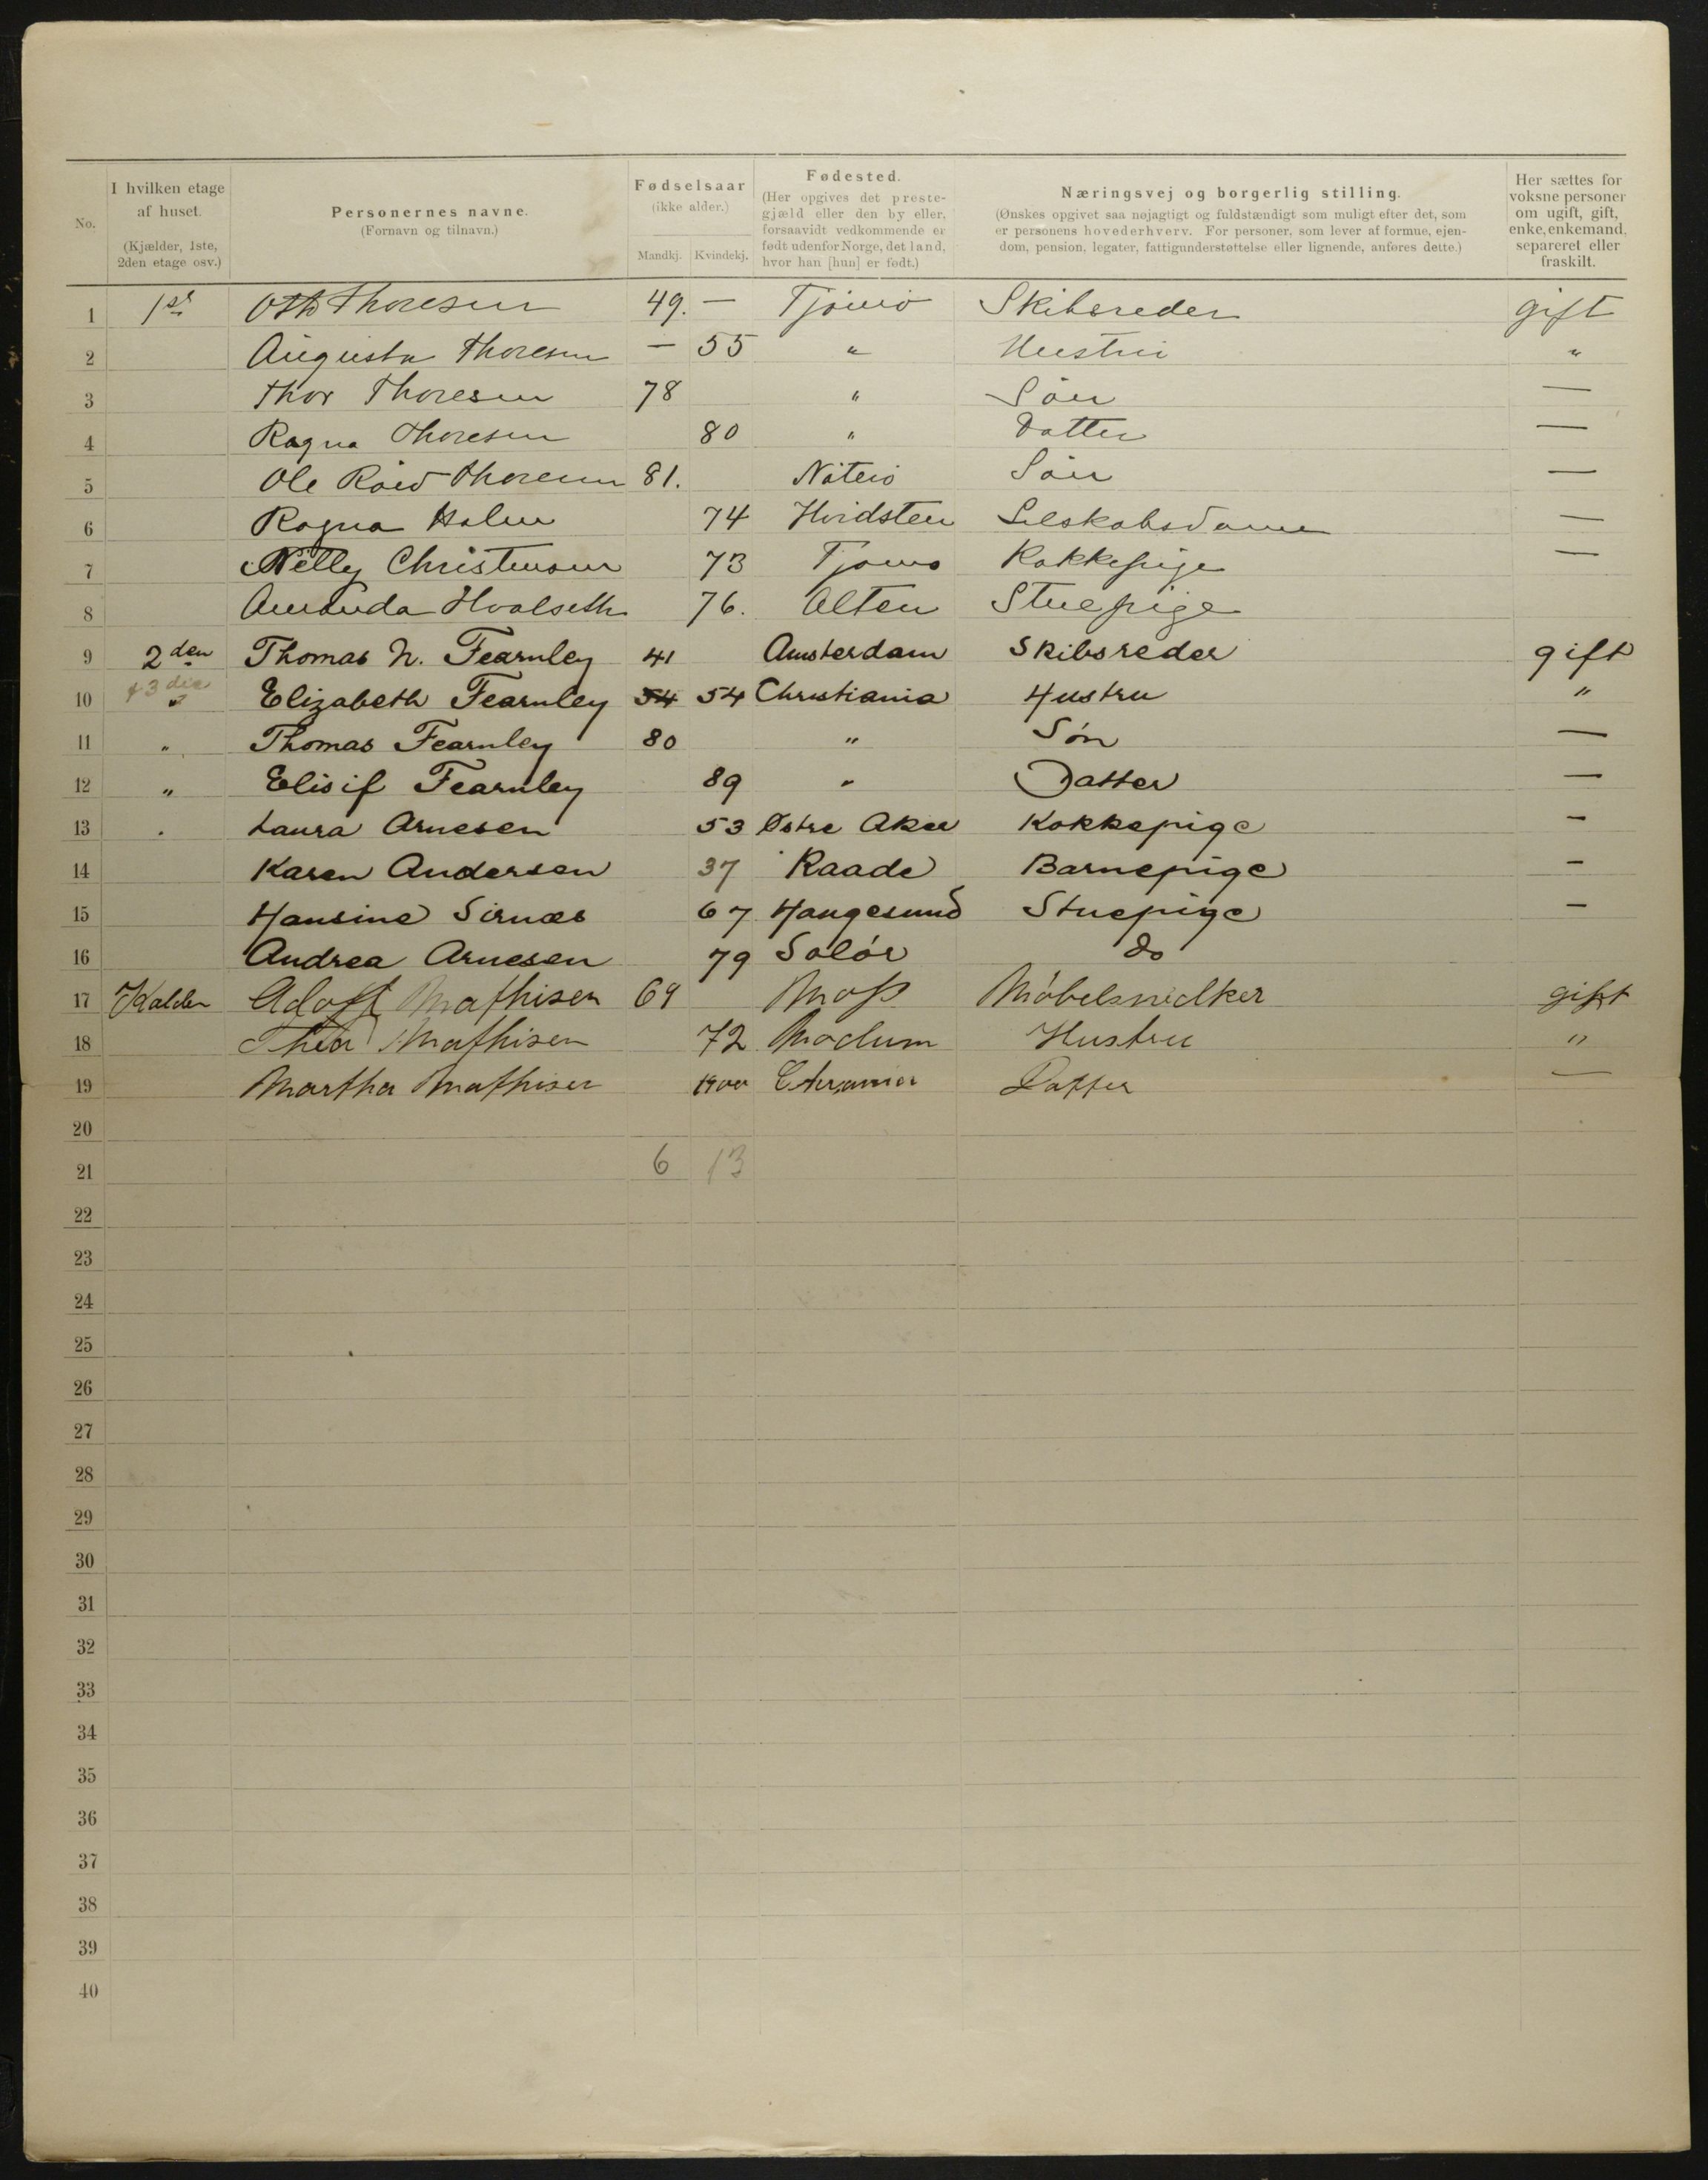 No.
I hvilken etage af huset. (Kjælder, 1ste, 2den etage osv.)
Personernes navne. (Fornavn og tilnavn.)
Fødselsaar (ikke alder.)
Mandkj. Kvindekj.
Fødested. (Her opgives det prestegjæld eller den by eller, forsaavidt vedkommende er født udenfor Norge, det land, hvor han [hun] er født.)
Næringsvej og borgerlig stilling.
(Ønskes opgivet saa nøjagtigt og fuldstændigt som muligt efter det, som
er personens hovederhverv. For personer, som lever af formue, ejen-
dom, pension, legater, fattigunderstøttelse eller lignende, anføres dette.)
Her sættes for voksne personer om ugift, gift, enke, enkemand, separeret eller fraskilt.
1 1ste Otto Thoresen 49. — Tjömö Skibsreder gift
2 Augusta Thoresen — 55 " Hustru "
3 Thor Thoresen 78 " Sön —
4 Ragna Thoresen 80 " Datter —
5 Ole Röed Thoresen 81. Nöterö Sön —
6 Ragna Holm 74 Hvidsten Selskabsdame —
7 Nelly Christensen 73 Tjömö Kokkepige —
8 Amanda Hvalseth 76. Alten Stuepige
9 2den Thomas N. Fearnley 41 Amsterdam Skibsreder gift
10 & 3die " Elizabeth Fearnley 54 54 Christiania Hustru "
11 " Thomas Fearnley 80 " Søn —
12 " Elisif Fearnley 89 " Datter —
13 " Laura Arnesen 53 Østre Aker Kokkepige —
14 Karen Andersen 37 Raade Barnepige —
15 Hansine Sirnæs 67 Haugesund Stuepige —
16 Andrea Arnesen 79 Solör do
17 Kalder Adolf Mathisen 69 Moss Möbelsnedker gift
18 Thea Mathisen 72 Modum Hustru "
19 Martha Mathisen 1900 Chr,ania Datter —
20
21 6 13
22
23
24
25
26
27
28
29
30
31
32
33
34
35
36
37
38
39
40